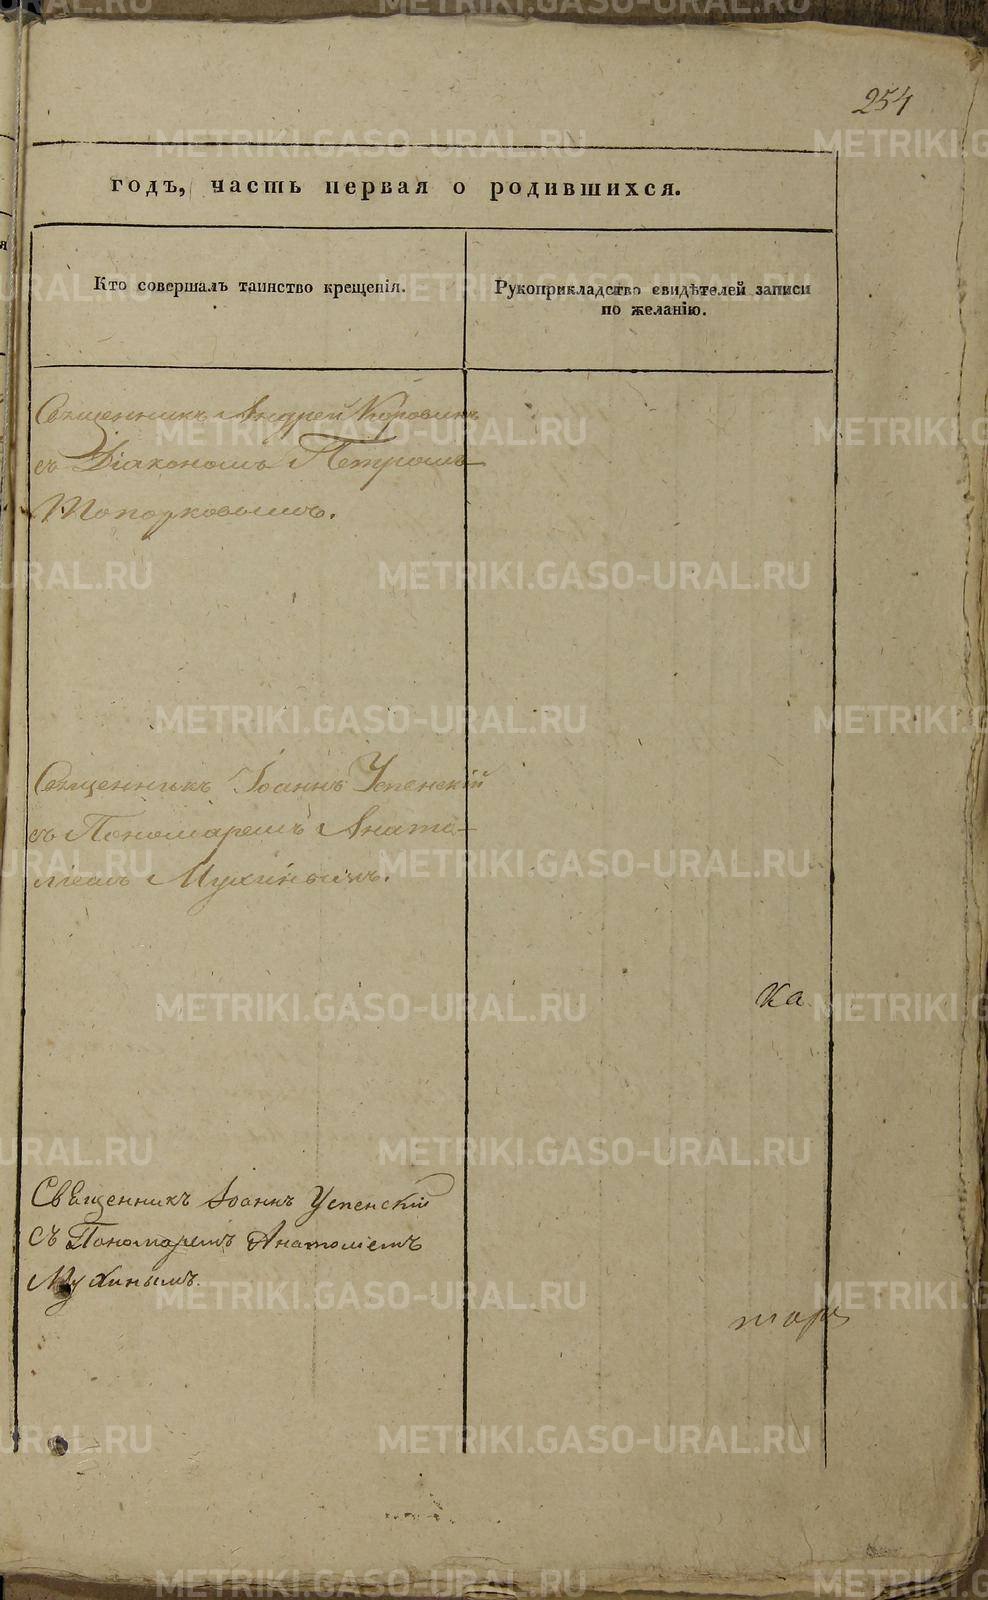 254
годъ, часть первая о родившихся.
Кто совершалъ таинство крещенія.
Рукоприкладство свидѣтелей записи
по желанію.
Священникъ Андрей Коровинъ
съ Діакономъ Петромъ
Топорковымъ.
Священникъ Іоаннъ Успенскій
съ Пономаремъ Анато-
ліемъ Мухинымъ.
Ка
Священникъ Іоаннъ Успенскій
съ Пономаремъ Анатоліемъ
Мухинымъ.
тора
METRIKI.GASO-URAL.RU